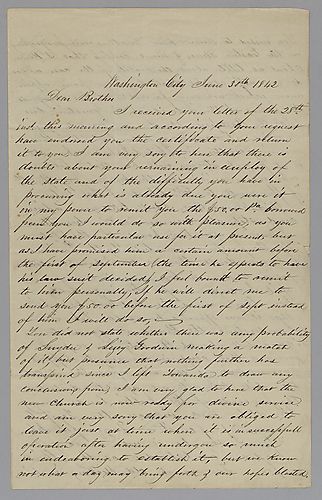 Washington City June 30th 1842
Dear Brother
I received your letter of the 28th
inst. this morning and according to your request
have endorsed you the certificate and return
it to you. I am very sorry to hear that there is
doubts about your remaining in employ of
the State and of the difficulty you have in
procuring what is already due you were it
in my power to remit you the $50,00 I
from you I would do so with pleasure, you
must have patience use for it at present as
as I have promised him a certain amount before
the first of September (the time he expects to have
his law suit decided) I feel bound to remit
to him personally, if he will direct me to
send you $50.00 before the first of sept instead
of him I will do so,
You did not state whether there was any probability
of Snyder & Goodwin making a match
of it, but presume that nothing further has
transpired since I left Towanda to draw any
conclusions from, I am very glad to hear that the
new Church is now ready for divine service
and am very sorry that you are obliged to
leave it just at time when it is in successfull
operation after having undergone so much
in endeavoring to establish it, but we know
not what a day may bring forth & our hopes blasted.